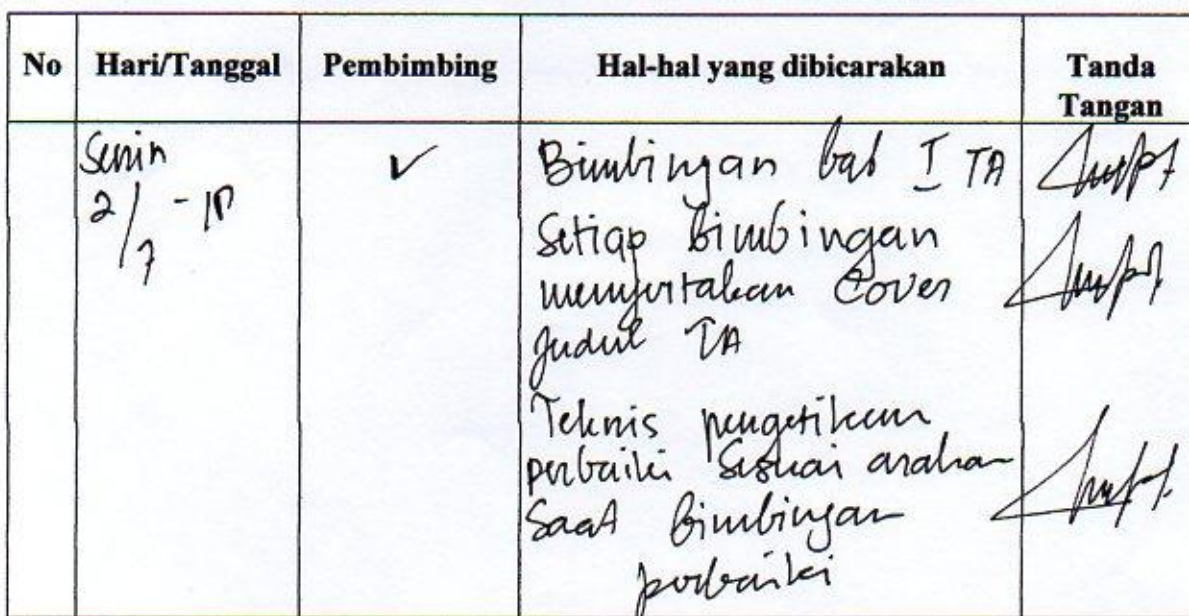 No Hari/Tanggal Pembimbing Hal-hal yang dibicarakan Tanda
Tangan
Senin ✓ Bimbingan bab I TA
2/7 - 18 Setiap bimbingan
menyertakan Cover
Judul TA
Teknis pengetikan
perbaiki Sesuai arahan
Saat Bimbingan
perbaiki